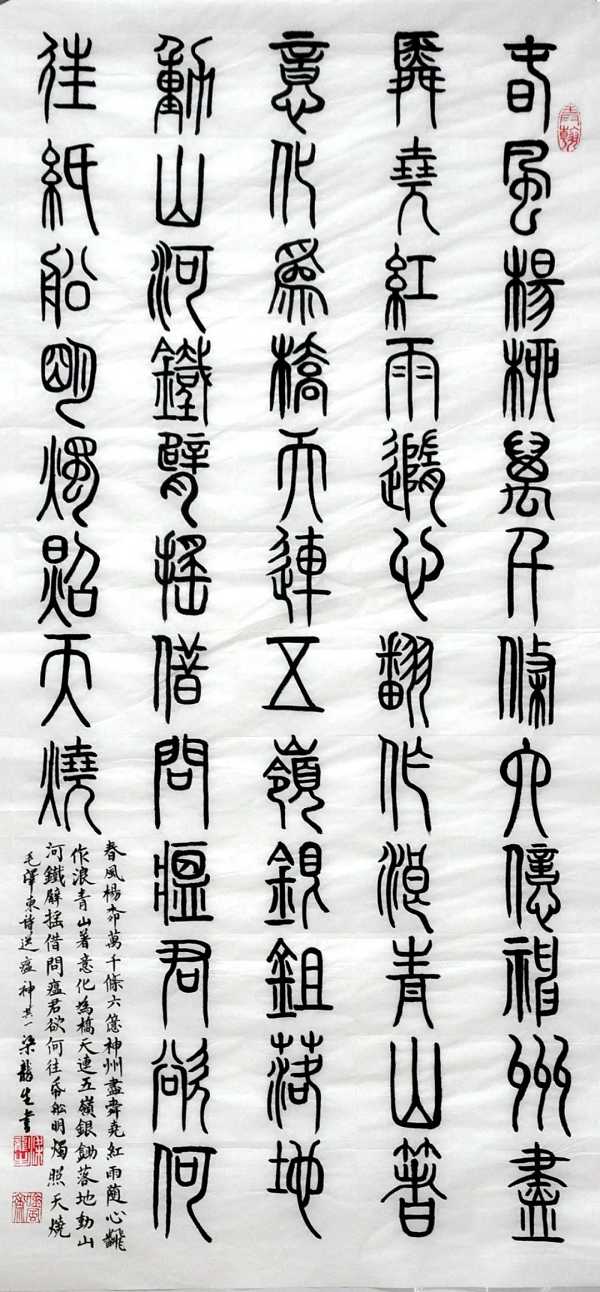 春風楊柳萬千條六億神州盡
舜堯紅雨隨心翻作浪青山著
意化為橋天連五嶺銀鋤落地
動山河鐵臂搖借問瘟君欲何
往紙船明燭照天燒
春風楊柳萬千條六億神州盡舜堯紅雨隨心翻
作浪青山著意化為橋天連五嶺銀鋤落地動山
河鐵臂搖借問瘟君欲何往紙船明燭照天燒
毛澤東詩送瘟神其一梁書